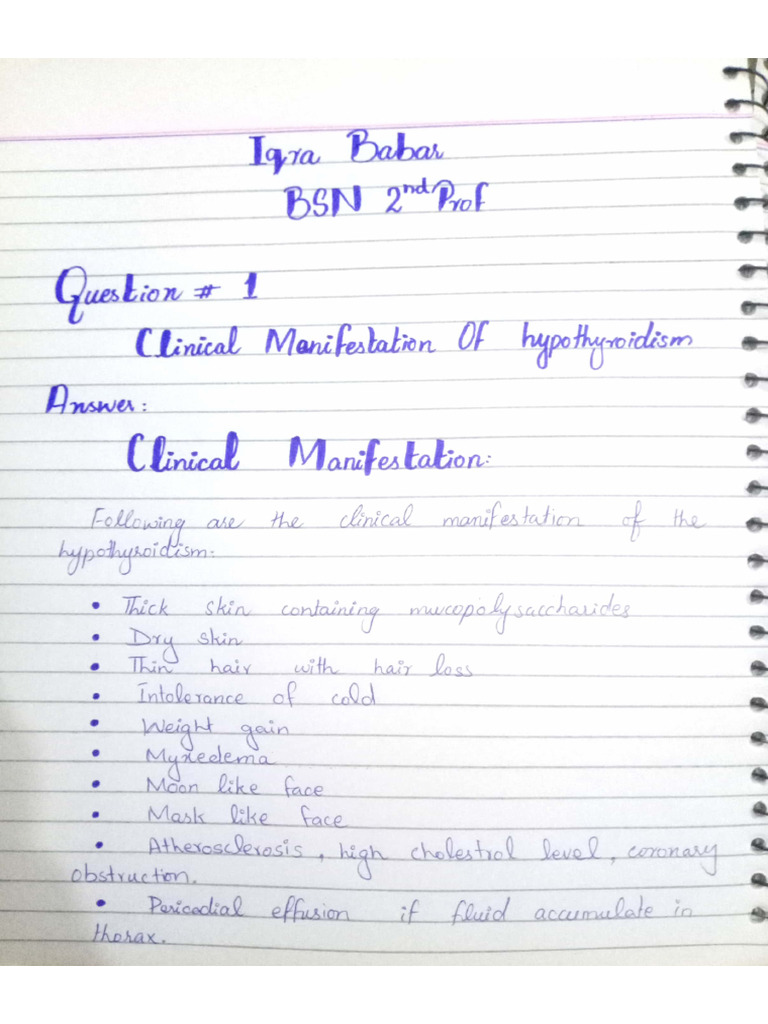 Iqra Babar
BSN 2nd Prof
Question # 1
Clinical Manifestation Of hypothyroidism
Answer:
Clinical Manifestation:
Following are the clinical manifestation of the
hypothyroidism:
• Thick skin containing mucopolysaccharides
• Dry skin
• Thin hair with hair loss
• Intolerance of cold
• Weight gain
• Myxedema
• Moon like face
• Mask like face
• Atherosclerosis, high cholestrol level, coronary
obstruction.
• Pericadial effusion if fluid accumulate in
thorax.